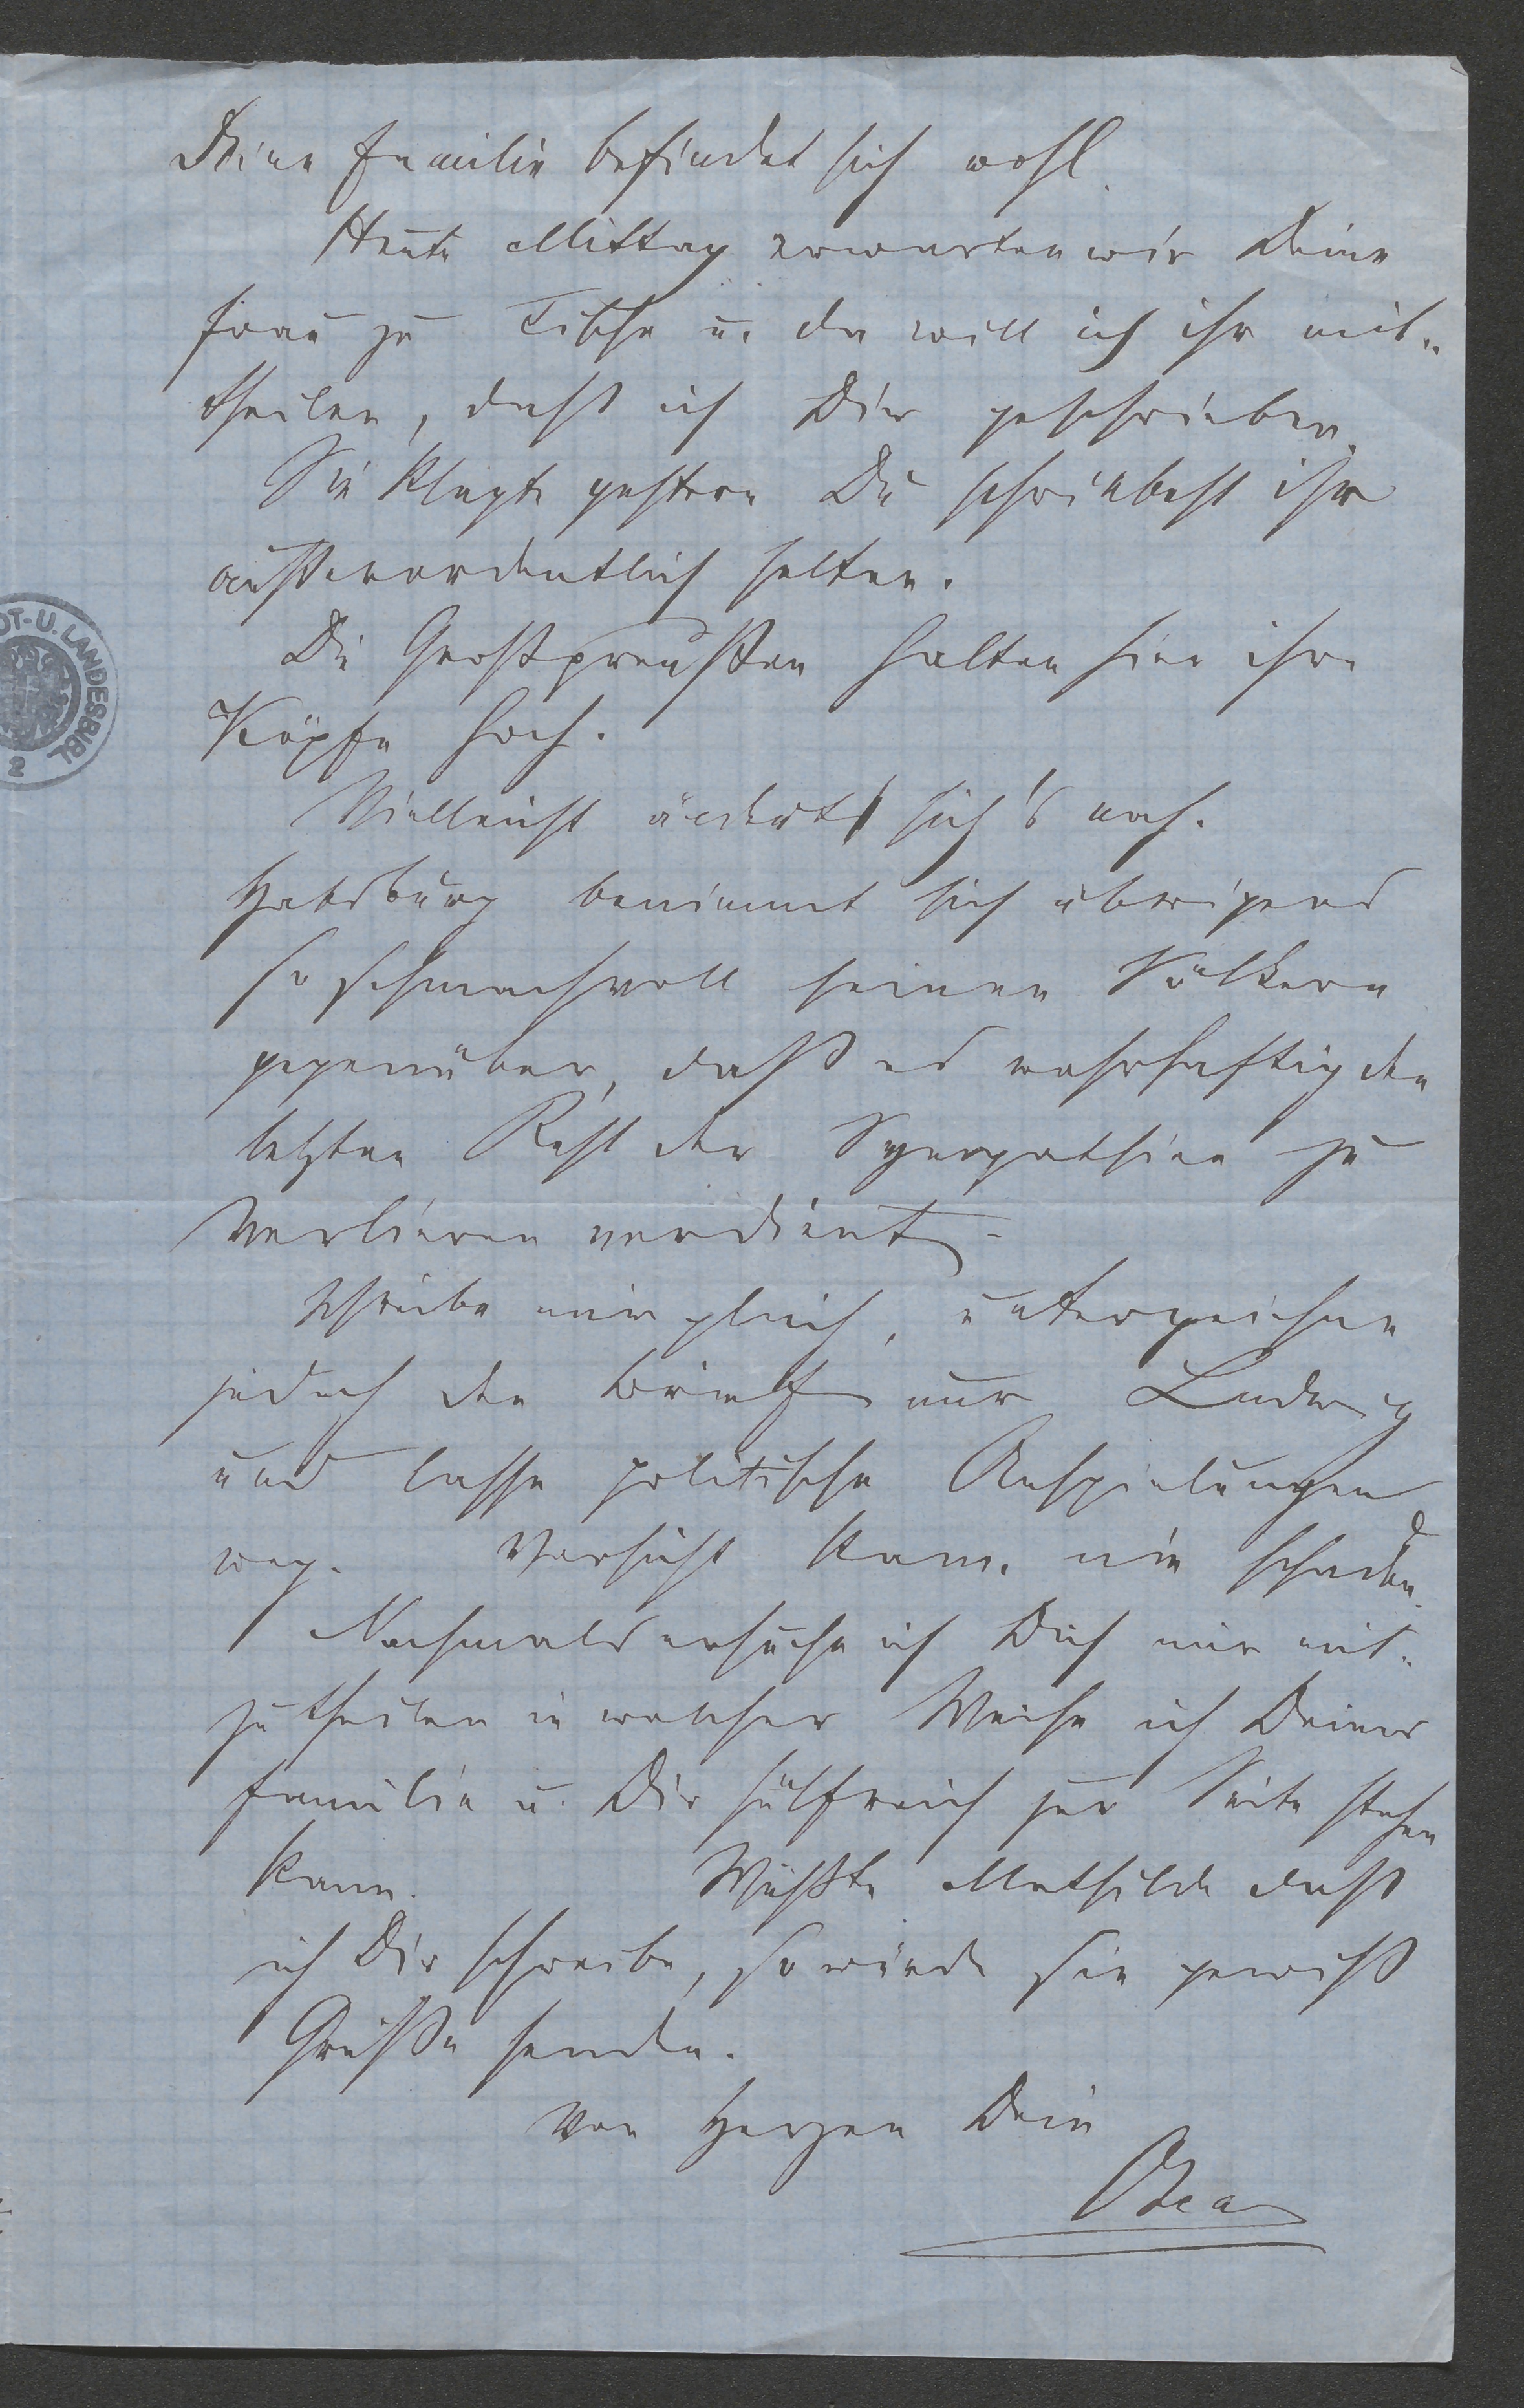 Deine Familie befindet sich wohl.
Heute Mittag erwarten wir Deine
Frau zu Tische u. da will ich ihr mit-
theilen, daß ich Dir geschrieben.
Sie klagte gestern Du schriebest ihr
außerordentlich selten.
Die Großpreußen halten hier ihre
Köpfe hoch.
Vielleicht ändert sich's noch.
Habsburg benimmt sich übrigens
so schmachvoll seinen Völkern
gegenüber, daß es wahrhaftig den
letzten Rest der Sympathien zu
verlieren verdient.
Schreibe mir gleich, unterzeichne
jedoch den Brief nur Ludwig
und lasse politische Anspielungen
weg. Vorsicht kann nie schaden.
Nochmals ersuche ich Dich mir mit-
zutheilen in welcher Weise ich Deiner
Familie u. Dir hülfreich zur Seite stehen
kann. Wüßte Mathilde daß
ich Dir schreibe, so würde sie gewiß
Grüße senden.
Von Herzen Dein
DT- U. LANDESBIBL
2